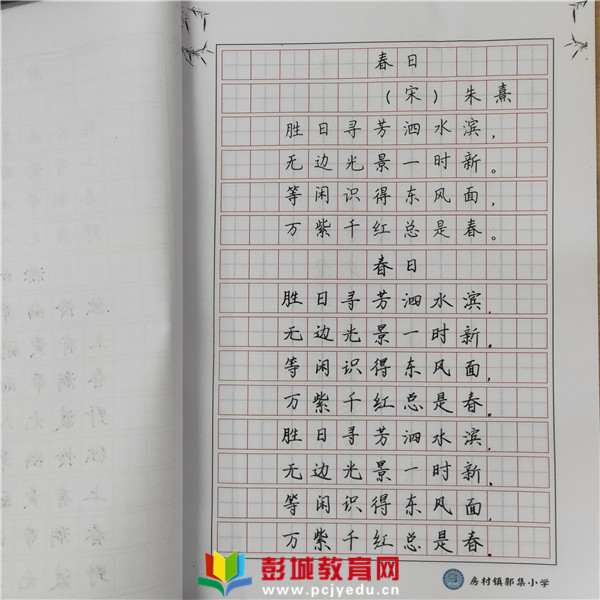 春日
（宋）朱熹
胜日寻芳泗水滨，
无边光景一时新。
等闲识得东风面，
万紫千红总是春。
春日
胜日寻芳泗水滨，
无边光景一时新。
等闲识得东风面，
万紫千红总是春。
胜日寻芳泗水滨，
无边光景一时新。
等闲识得东风面，
万紫千红总是春。
房村镇郭集小学
彭城教育网
www.pcjyedu.cn